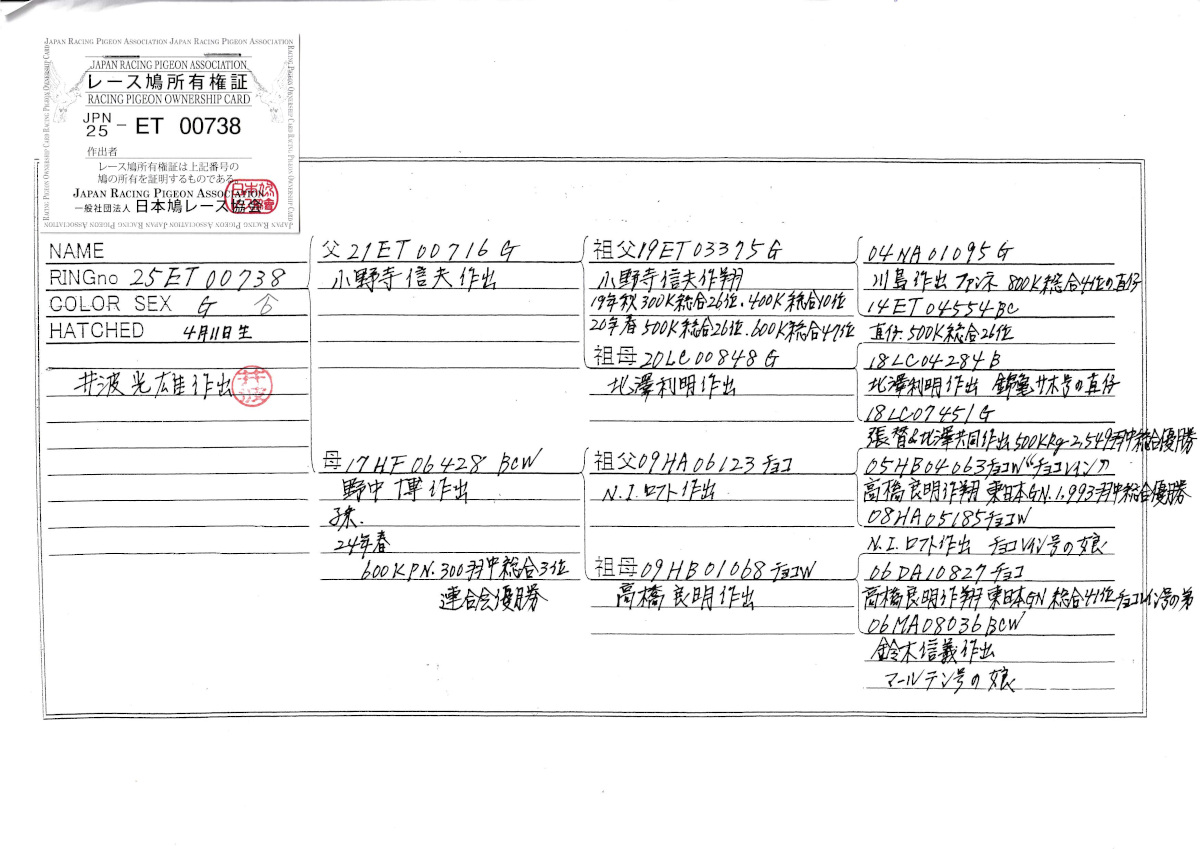 JAPAN RACING PIGEON ASSOCIATION JAPAN RACING PIGEON ASSOCIATION
JAPAN RACING PIGEON ASSOCIATION
レース鳩所有権証
RACING PIGEON OWNERSHIP CARD
JPN
25 - ET 00738
作出者
レース鳩所有権証は上記番号の
鳩の所有を証明するものである。
JAPAN RACING PIGEON ASSOCIATION
一般社団法人 日本鳩レース協会
NAME
RINGno 25ET00738
COLOR SEX G 合
HATCHED 4月11日生
井波光雄作出
父 21ET00716 G
小野寺信夫作出
母 17HF06428 BCW
野中 博作出
孫.
24年春
600KPN.300羽中総合3位
連合会優勝
祖父 19ET03375 G
小野寺信夫作翔
19年秋300K総合26位.400K総合10位
20年春500K総合26位.600K総合47位
祖母 20LC00848 G
北澤利明作出
祖父 09HA06123 チョコ
N.I.ロフト作出
祖母 09HB01068 チョコW
高橋良明作出
04NA01095 G
川島作出 ファンネ 800K総合4位の直仔
14ET04554 BC
直仔.500K総合26位
18LC04284 B
北澤利明作出 号の直仔
18LC07451 G
張 &北澤共同作出500KRg2,549羽中総合優勝
05HB04063チョコW"チョコレイン"
高橋良明作翔 東日本GN.1,993羽中総合優勝
08HA05185チョコW
N.I.ロフト作出 チョコレイン号の娘
06DA10827 チョコ
高橋良明作翔 東日本GN総合41位チョコレイン号の弟
06MA08036 BCW
鈴木信義作出
マールテン号の娘